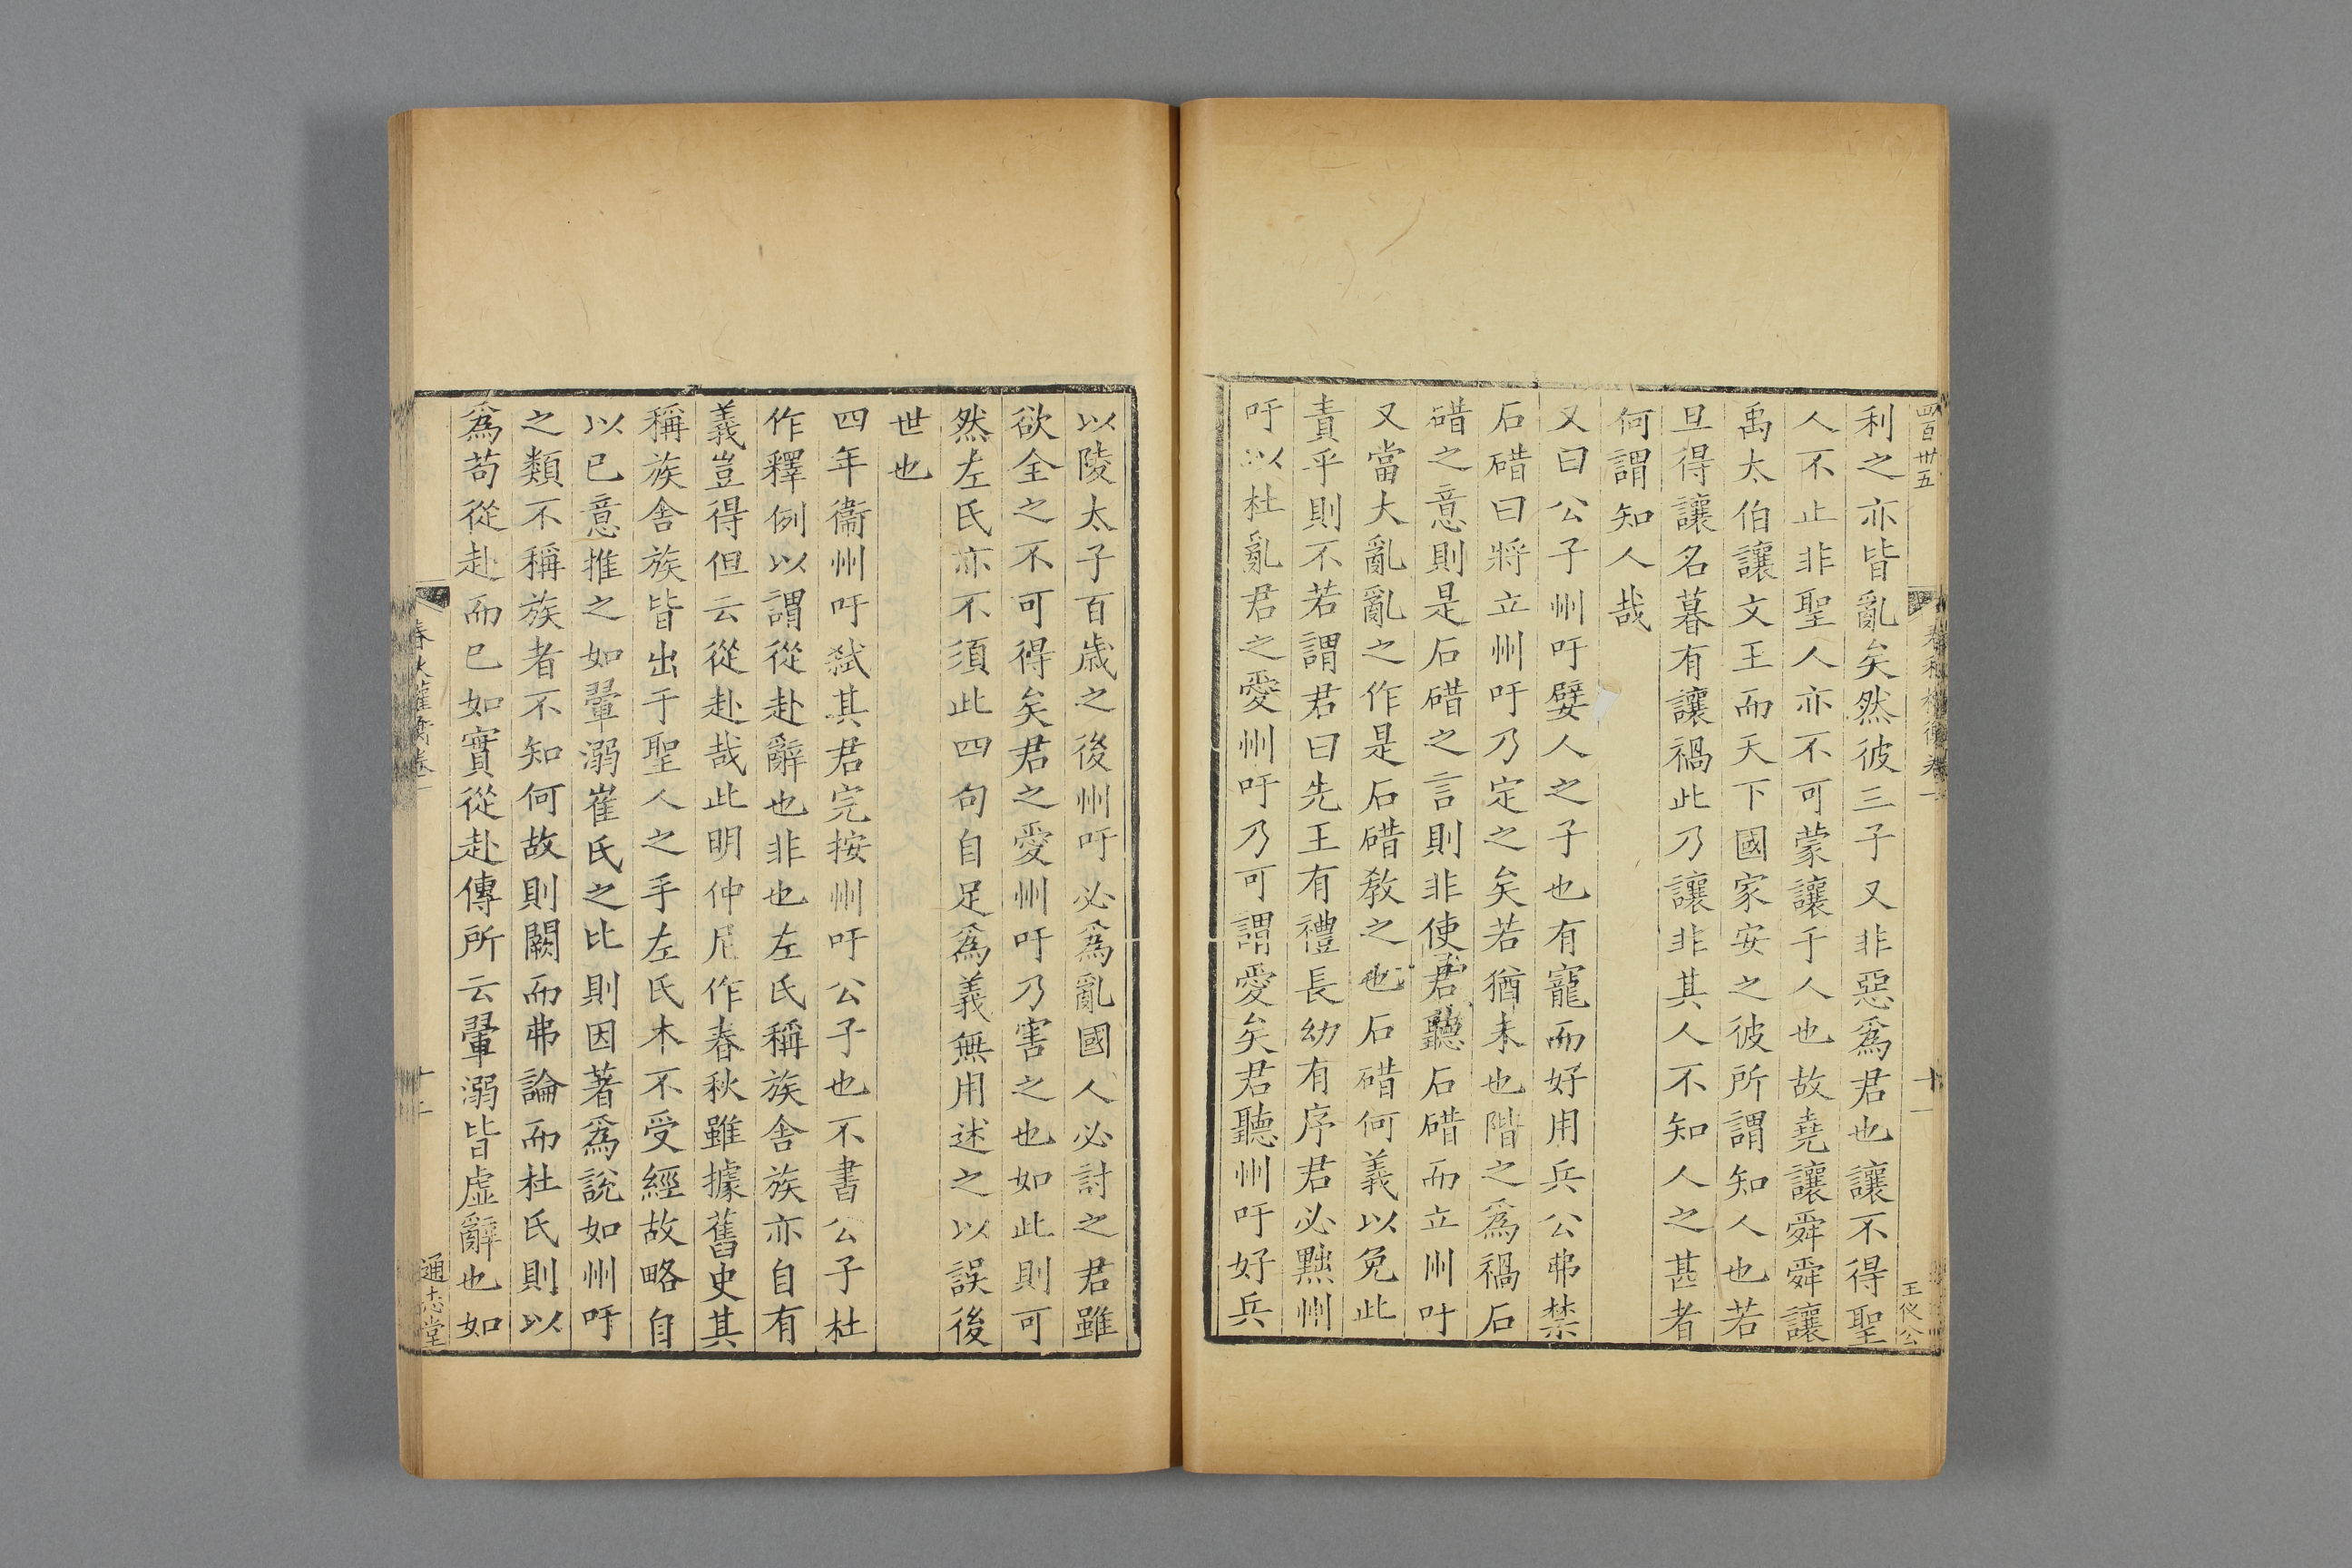 四百卅五
春秋權衡卷一
十一
利之亦皆亂矣然彼三子又非惡爲君也讓不得聖
人不止非聖人亦不可蒙讓于人也故堯讓舜舜讓
禹太伯讓文王而天下國家安之彼所謂知人也若
旦得讓名暮有讓禍此乃讓非其人不知人之甚者
何謂知人哉
又曰公子州吁嬖人之子也有寵而好用兵公弗禁
石碏曰將立州吁乃定之矣若猶未也階之爲禍石
碏之意則是石碏之言則非使君聽石碏而立州吁
又當大亂亂之作是石碏教之也石碏何義以免此
責乎則不若謂君曰先王有禮長幼有序君必黜州
吁以杜亂君之愛州吁乃可謂愛矣君聽州吁好兵
以陵太子百歲之後州吁必爲亂國人必討之君雖
欲全之不可得矣君之愛州吁乃害之也如此則可
然左氏亦不須此四句自足爲義無用述之以誤後
世也
四年衞州吁弑其君完按州吁公子也不書公子杜
作釋例以謂從赴辭也非也左氏稱族舍族亦自有
義豈得但云從赴哉此明仲尼作春秋雖據舊史其
稱族舍族皆出于聖人之手左氏木不受經故略自
以已意推之如翬溺崔氏之比則因著爲說如州吁
之類不稱族者不知何故則闕而弗論而杜氏則以
爲苟從赴而已如實從赴傳所云翬溺皆虛辭也如
春秋權衡卷一
十二
通志堂